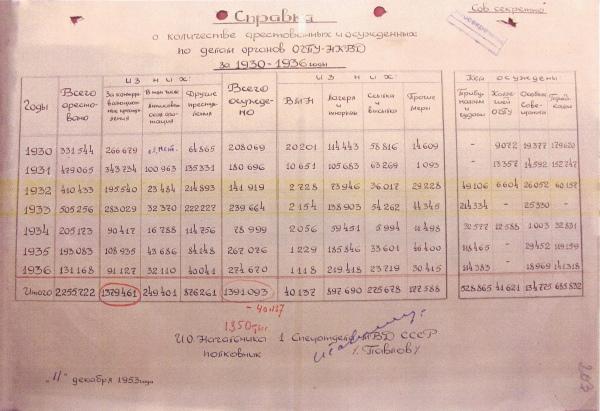 Сов. секретно
Справка
о количестве арестованных и осужденных
по делам органов ОГПУ-НКВД
за 1930-1936 годы
Годы Всего арестовано из них: За контрреволюционные преступления В том числе антисоветская агитация Другие преступления Всего осуждено из них: ВМН Лагеря и тюрьмы Ссылка и высылка Прочие меры Кем осуждены: Трибуналы и суды Коллегией ОГПУ Особое Совещание Тройками
1930 331544 266679 64865 208069 20201 114443 58816 14609 - 9072 19377 179620
1931 479065 343734 100963 135331 180696 10651 105683 63269 1093 - 13357 14592 152747
1932 410433 195540 23484 214893 141919 2728 73946 36017 29228 49106 6604 26052 60157
1933 505256 283029 32370 222227 239664 2154 138903 54262 44345 214334 - 25330 -
1934 205173 90417 16788 114756 78999 2056 59451 5994 11498 32577 12588 1003 32831
1935 193083 108935 43686 84148 267076 1229 185846 33601 46400 118465 - 29452 119159
1936 131168 91127 32110 40041 274670 1118 219418 23719 30415 114383 - 18969 141318
Итого 2255722 1379461 249401 876261 1391093 40137 897690 275678 177588 528865 41621 134775 685832
- 40137
ИО Начальника 1 Спецотдела МВД СССР
полковник (Павлов)
"11" декабря 1953 года